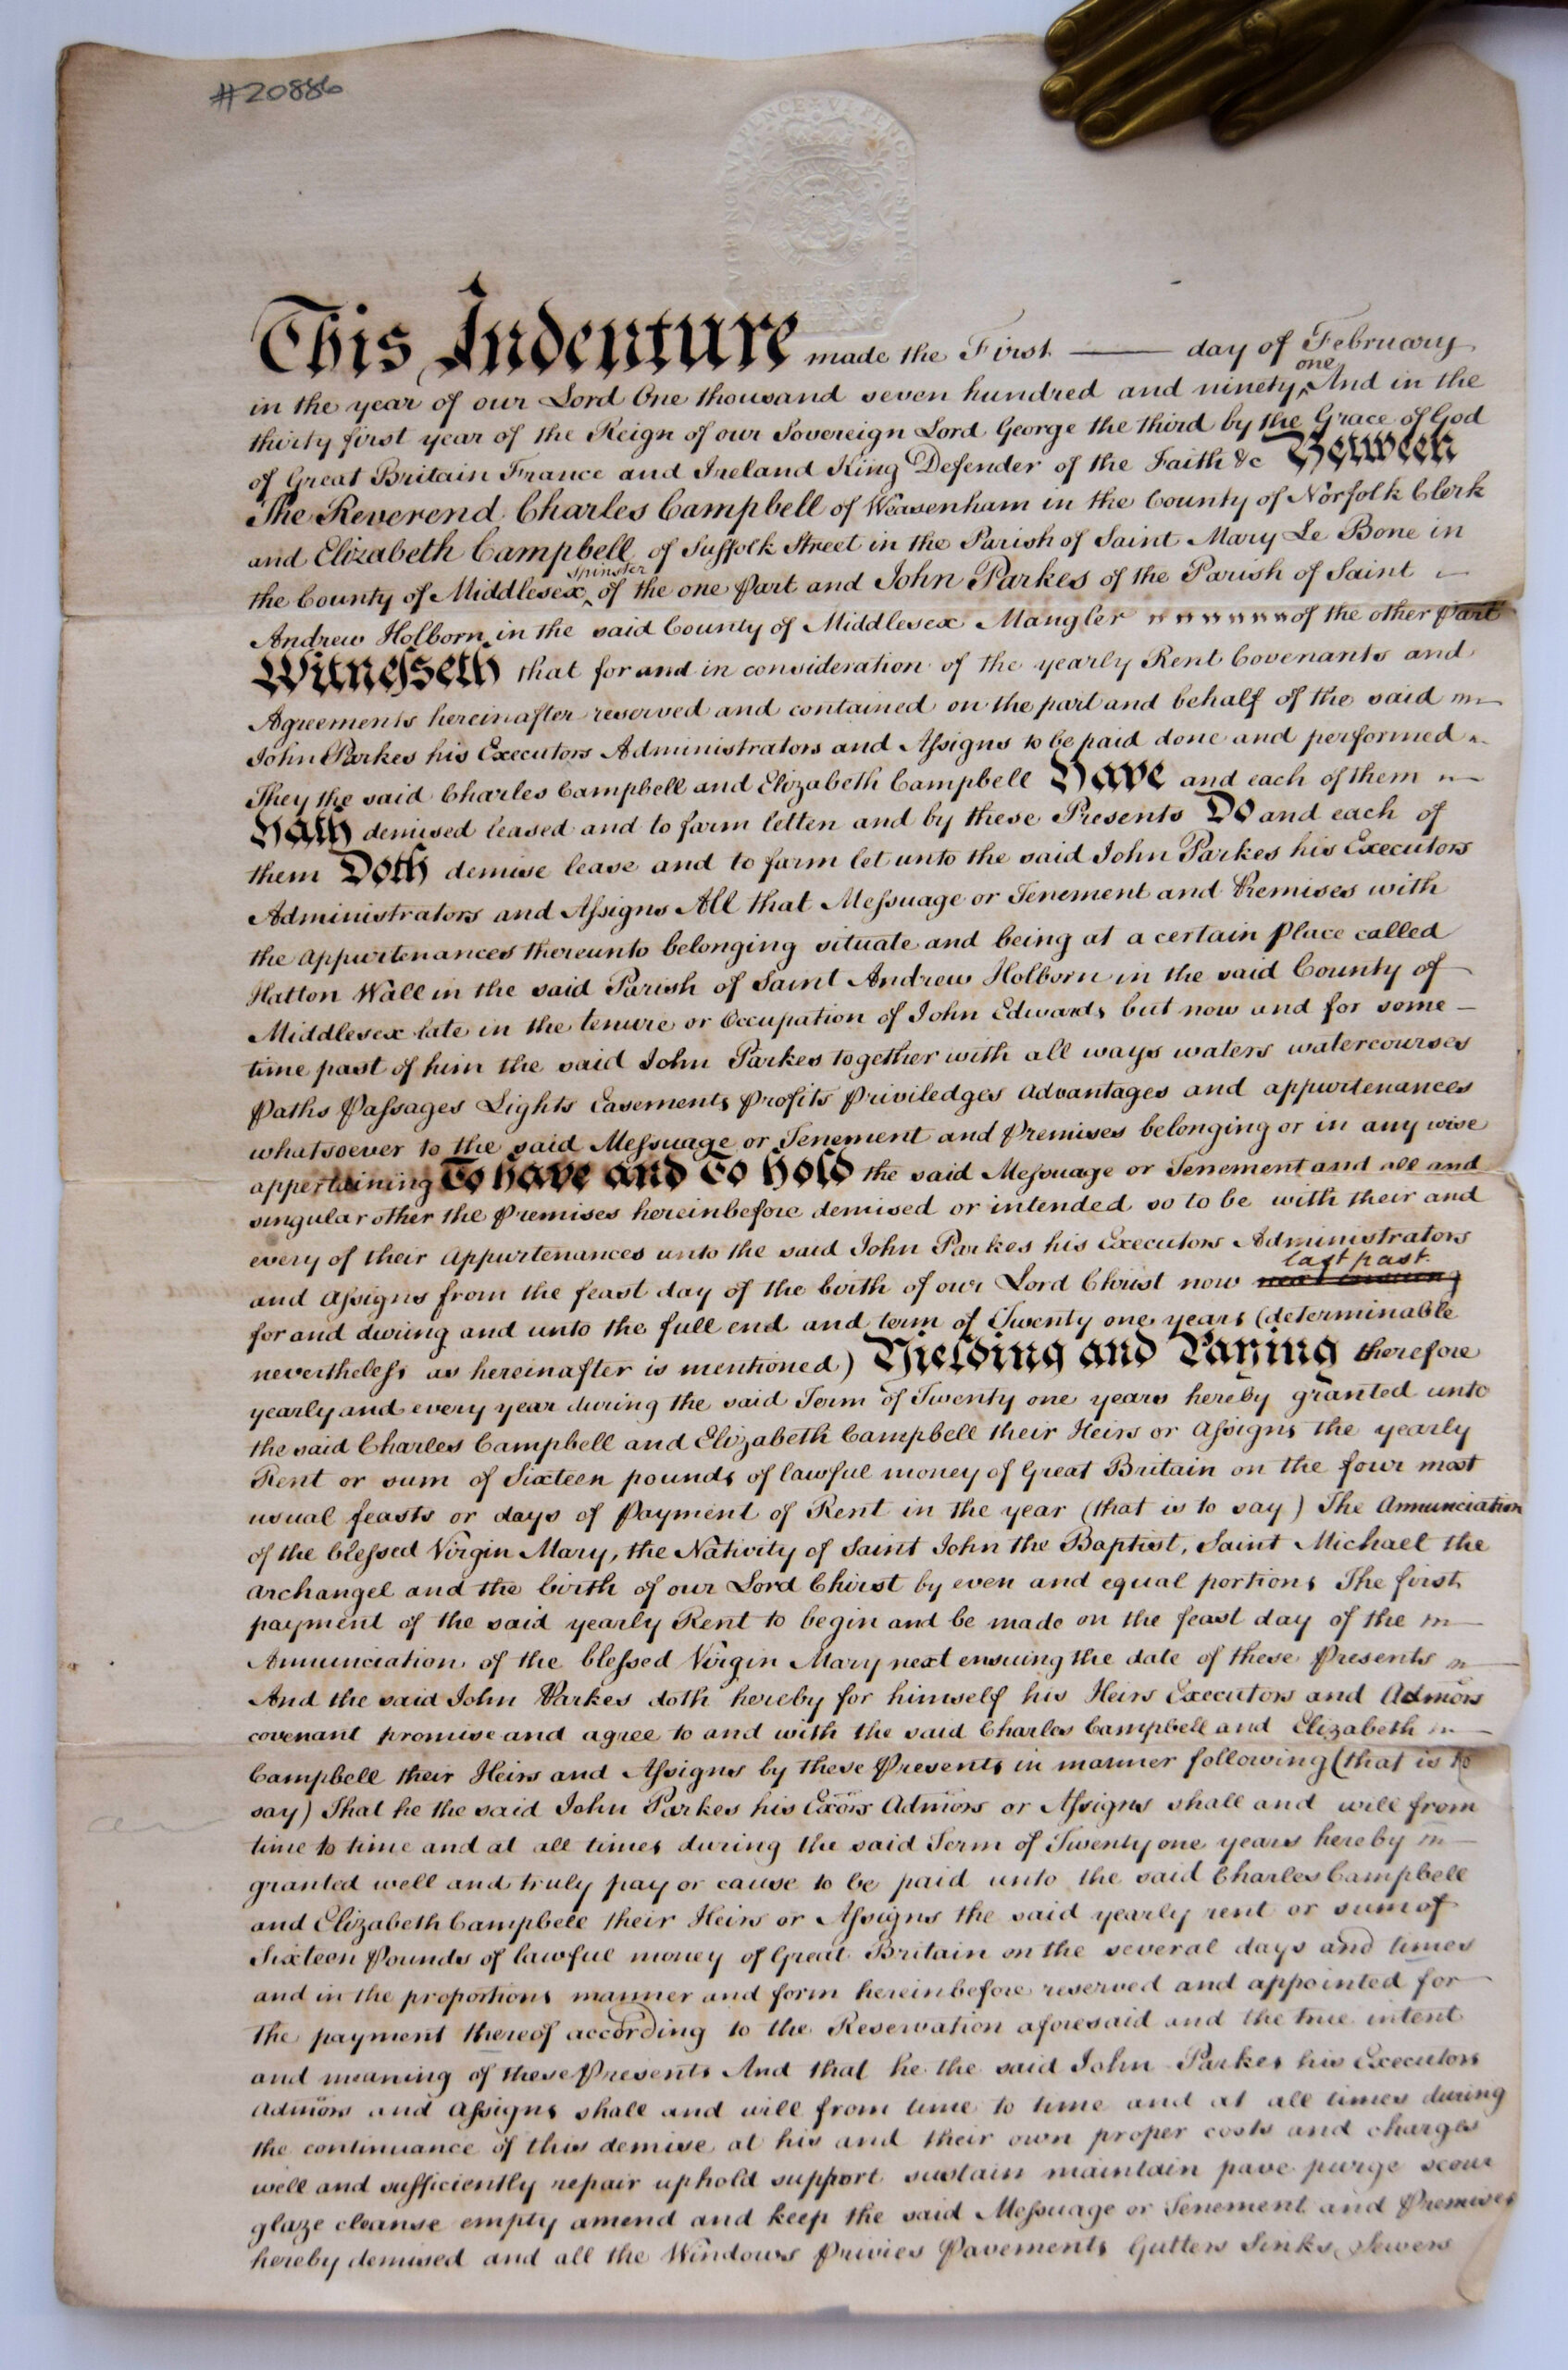 #20886
VI PENCE VI PENCE
This Indenture made the First day of February
one
in the year of our Lord One thousand seven hundred and ninety And in the
thirty first year of the Reign of our Sovereign Lord George the third by the Grace of God
of Great Britain France and Ireland King Defender of the Faith &c Between
The Reverend Charles Campbell of Weasenham in the County of Norfolk Clerk
and Elizabeth Campbell of Suffolk Street in the Parish of Saint Mary Le Bone in
spinster
the County of Middlesex ‸ of the one Part and John Parkes of the Parish of Saint
Andrew Holborn in the said County of Middlesex Mangler of the other Part
Witneſseth that for and in consideration of the yearly Rent Covenants and
Agreements hereinafter reserved and contained on the part and behalf of the said
John Parkes his Executors Administrators and Aſsigns to be paid done and performed
They the said Charles Campbell and Elizabeth Campbell Have and each of them
Hath demised leased and to farm letten and by these Presents Do and each of
them Doth demise lease and to farm let unto the said John Parkes his Executors
Administrators and Aſsigns All that Meſsuage or Tenement and Premises with
the appurtenances thereunto belonging situate and being at a certain Place called
Hatton Wall in the said Parish of Saint Andrew Holborn in the said County of
Middlesex late in the tenure or Occupation of John Edwards but now and for some –
time past of him the said John Parkes together with all ways waters watercourses
Paths Paſsages Lights Easements Profits Priviledges Advantages and appurtenances
whatsoever to the said Meſsuage or Tenement and Premises belonging or in any wise
appertaining To have and To hold the said Meſsuage or Tenement and all and
singular other the Premises hereinbefore demised or intended so to be with their and
every of their Appurtenances unto the said John Parkes his Executors Administrators
last past
and Aſsigns from the feast day of the birth of our Lord Christ now next ensuing
for and during and unto the full end and term of Twenty one years (determinable
neverthelefs as hereinafter is mentioned) Yielding and Paying therefore
yearly and every year during the said Term of Twenty one years hereby granted unto
the said Charles Campbell and Elizabeth Campbell their Heirs or Aſsigns the yearly
Rent or sum of Sixteen pounds of lawful money of Great Britain on the four most
usual feasts or days of Payment of Rent in the year (that is to say) The Annunciation
of the bleſsed Virgin Mary, the Nativity of Saint John the Baptist, Saint Michael the
Archangel and the birth of our Lord Christ by even and equal portions The first
payment of the said yearly Rent to begin and be made on the feast day of the
Annunciation of the bleſsed Virgin Mary next ensuing the date of these Presents
And the said John Parkes doth hereby for himself his Heirs Executors and Admors
covenant promise and agree to and with the said Charles Campbell and Elizabeth
Campbell their Heirs and Aſsigns by these Presents in manner following (that is to
say) That he the said John Parkes his Exors Admors or Aſsigns shall and will from
time to time and at all times during the said Term of Twenty one years hereby
granted well and truly pay or cause to be paid unto the said Charles Campbell
and Elizabeth Campbell their Heirs or Aſsigns the said yearly rent or sum of
Sixteen Pounds of lawful money of Great Britain on the several days and times
and in the proportions manner and form hereinbefore reserved and appointed for
the payment thereof according to the Reservation aforesaid and the true intent
and meaning of these Presents And that he the said John Parkes his Executors
Admors and Aſsigns shall and will from time to time and at all times during
the continuance of this demise at his and their own proper costs and charges
well and sufficiently repair uphold support sustain maintain pave purge scour
glaze cleanse empty amend and keep the said Meſsuage or Tenement and Premises
hereby demised and all the Windows Privies Pavements Gutters Sinks Sewers